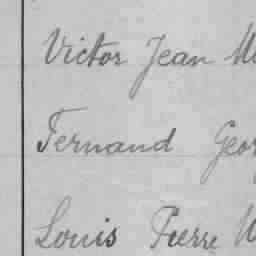 Victor Jean
Fernand Geor
Louis Pierre